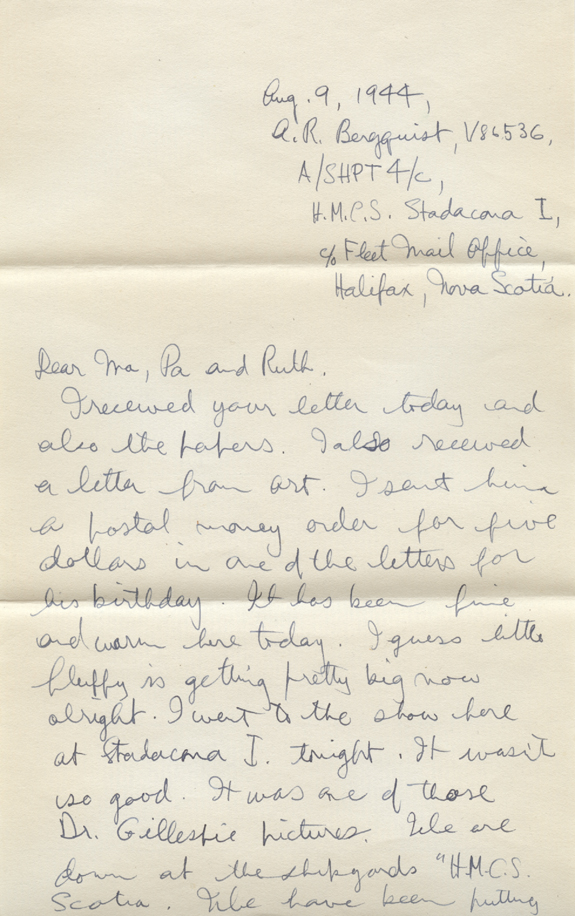 Aug. 9, 1944,
A.R. Bergquist, V86536,
A/SHPT 4/c,
H.M.C.S. Stadacona I,
c/o Fleet Mail Office,
Halifax, Nova Scotia.
Dear Ma, Pa and Ruth.
I received your letter today and
also the papers. I also received
a letter from Art. I sent him
a postal money order for five
dollars in one of the letters for
his birthday. It has been fine
and warm here today. I guess little
fluffy is getting pretty big now
alright. I went to the show here
at Stadacona I. tonight. It wasn't
so good. It was one of those
Dr. Gillespie pictures. We are
down at the shipyards "H.M.C.S.
Scotia. We have been putting